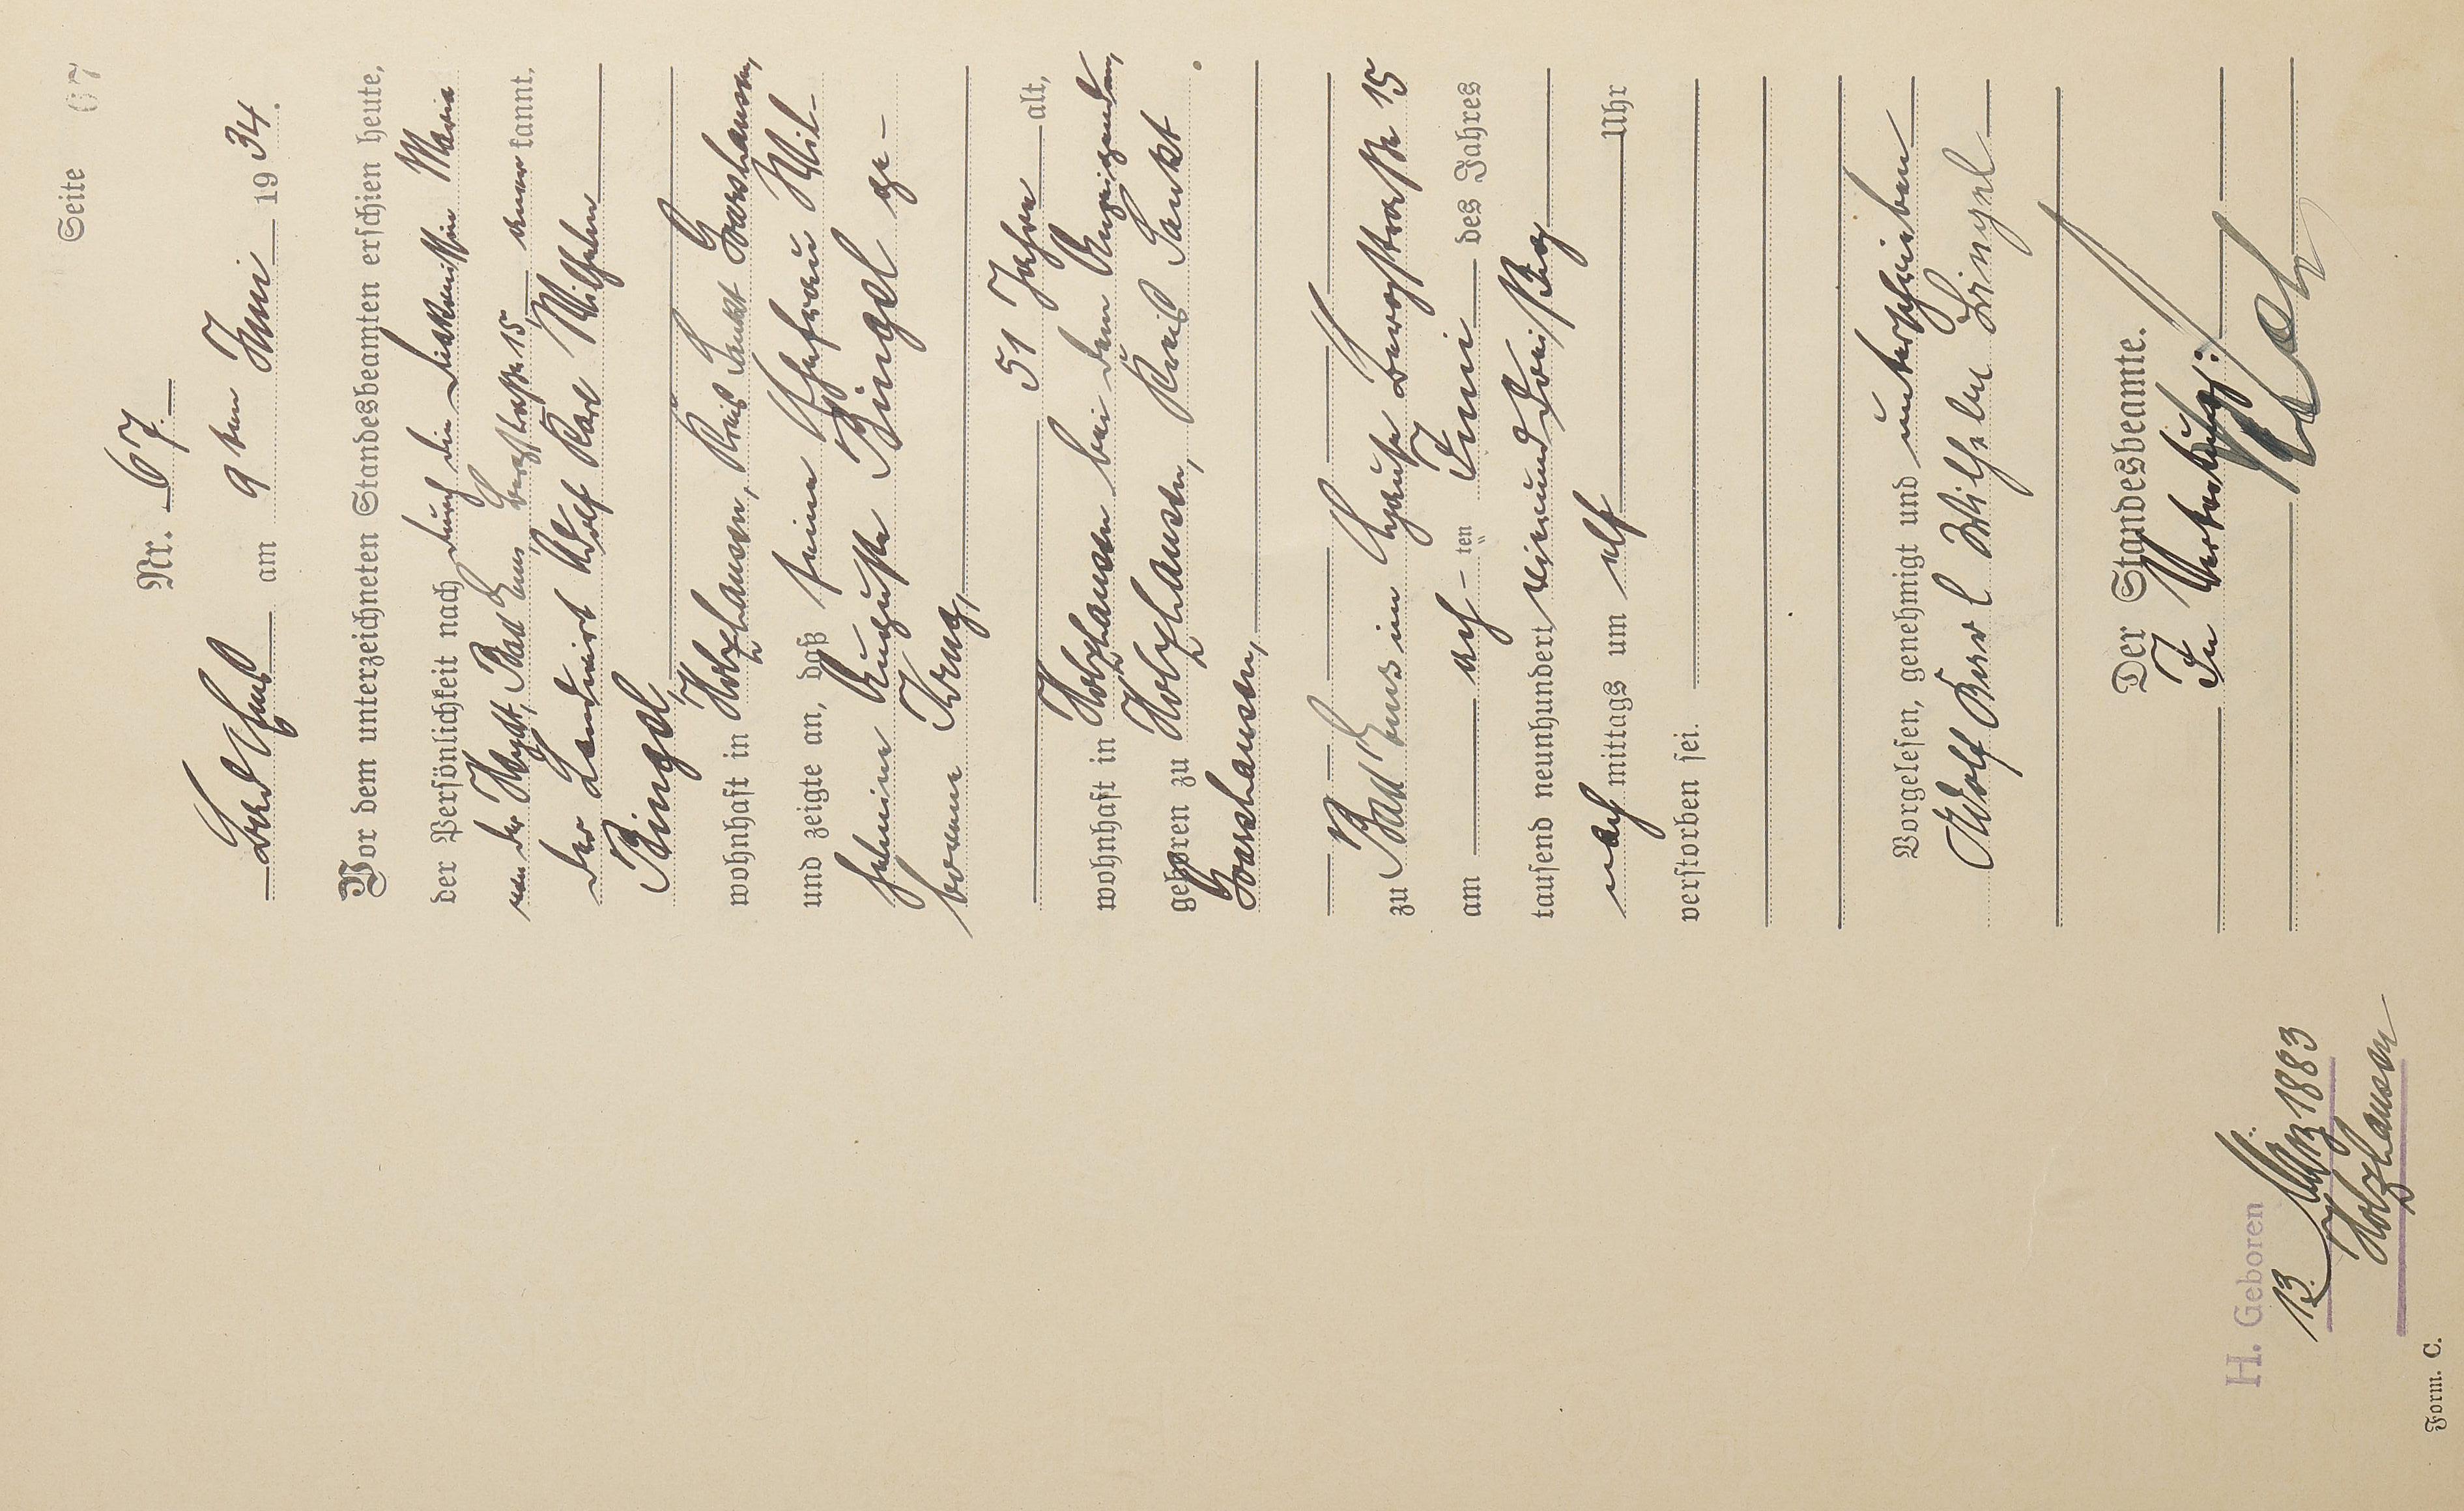 Seite 67
Nr. 67.
Bad Ems am 9ten Juni 1934.
Vor dem unterzeichneten Standesbeamten erschien heute,
der Persönlichkeit nach durch die Diakonissin Maria
van der Heydt, Bad Ems, Bergstraße 15, anerkannt,
der Landwirt Adolf Karl Wilhelm
Bingel,
wohnhaft in Holzhausen, Kreis Sankt Goarshausen,
und zeigte an, daß seine Ehefrau Wil-
helmine Auguste Bingel ge-
borene Krug,
51 Jahre alt,
wohnhaft in Holzhausen bei dem Anzeigenden,
geboren zu Holzhausen, Kreis Sankt
Goarshausen,
zu Bad Ems im Hause Bergstraße 15
am ach-ten Juni des Jahres
tausend neunhundert vierunddreißig
nachmittags um elf Uhr
verstorben sei.
Vorgelesen, genehmigt und unterschrieben
Adolf Karl Wilhelm Bingel
Der Standesbeamte.
In Vertretung:
H. Geboren
13. März 1883
Holzhausen
Form. C.